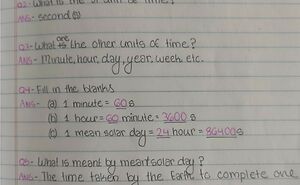 Q2- What is the SI unit of time?
Ans- second (s)
Q3- What are the other units of time?
Ans- Minute, hour, day, year, week etc.
Q4- Fill in the blanks
Ans- (a) 1 minute = 60s
(b) 1 hour = 60 minute = 3600 s
(c) 1 mean solar day = 24 hour = 86400s
Q5- What is meant by meant solar day?
Ans- The time taken by the Earth to complete one